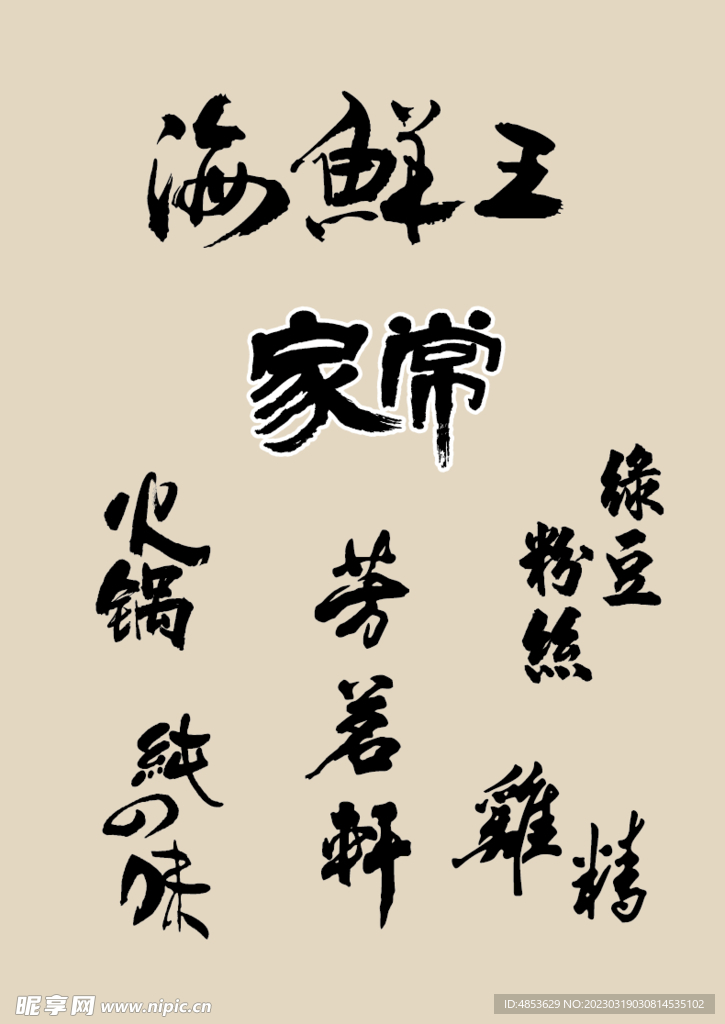 海鲜王
家常
火锅
芳茗軒
綠豆
粉絲
純の味
雞精
昵享网 www.nipic.cn
ID:4853629 NO:20230319030814535102